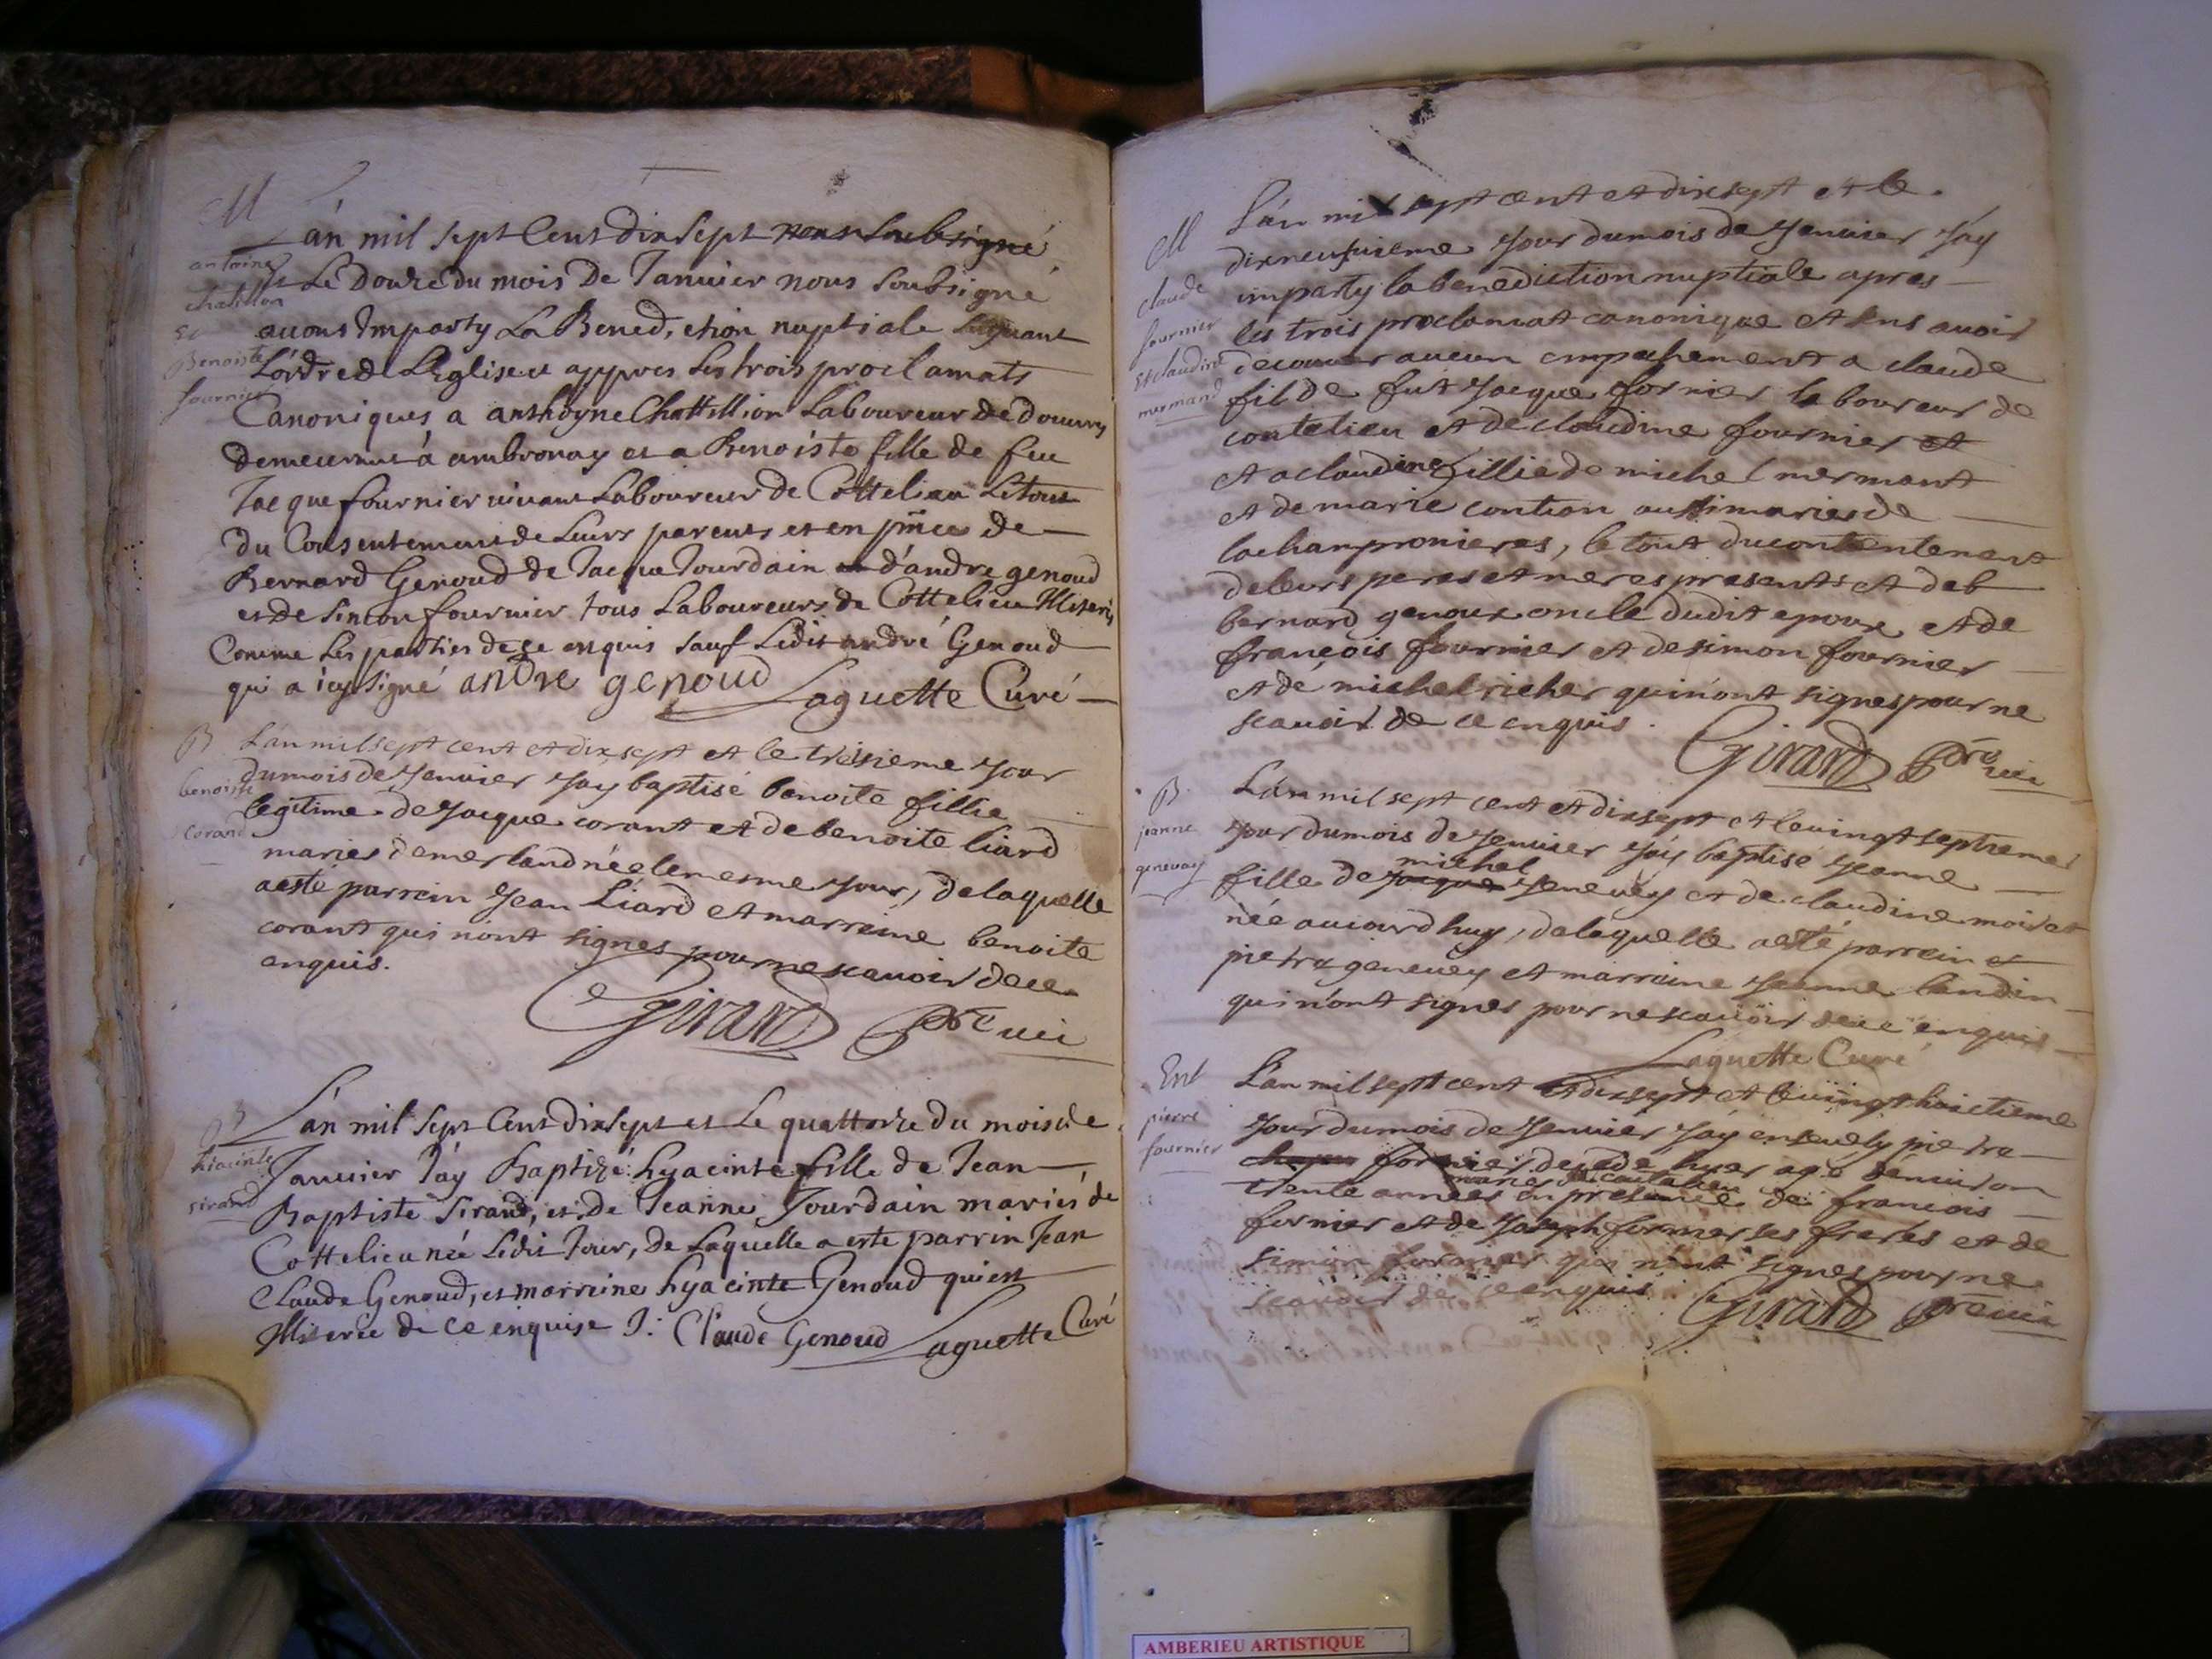 M
antoine
chatillon
Et
Benoiste
fournier
L'an mil sept Cent dix sept nous soubsigné
et Le douze du mois De Januier nous soubsigné
auons Imparty La Bened,ction nuptiale suiuant
L'ordre de L'Eglise et appres Les trois proclamats
Canoniques a anthoyne Chattillion Laboureur de douures
demeurant à ambronay et a Benoiste fille de feu
Jacque fournier uiuant Laboureur de Cottelieu Le tout
du Consentement de Leurs parents et en pñce de
Bernard Genoud de Jacque Jourdain et d'andre genoud
et de Simon fournier tous Laboureurs de Cottelieu Illiterés
Comme Les parties de ce enquis sauf Ledit andré Genoud
qui a icy signé andre genoud Laguette Curé
B
benoiste
corand
L'an mil sept cent et dix sept et le treisieme jour
dumois de jenuier jay baptisé benoite fillie
legitime de jacque corant et de benoite liard
maries demerland née le mesme jour, de laquelle
aesté parrein jean Liard et marreine benoite
corant qui nont signes pour ne scauoir de ce
enquis.
Girard Pre uic
B
hiacinte
sirand
L'an mil Sept Cent dix sept et Le quattorze du mois de
Januier J'ay Baptizé hyacinte fille de Jean
Baptiste Sirand, et de Jeanne Jourdain mariés de
Cottelieu née Ledit Jour, de Laquelle a este parrin Jean
Claude Genoud, et marreine hyacinte Genoud qui est
Illiterée de ce enquise J: Claude Genoud Laguette Curé
M
claude
fournier
Et claudine
mermand
L'an mil sept cent et dix sept et le
dixneufuieme jour dumois de jenuier jay
imparty la benediction nuptiale apres
les trois proclamat canonique et sens auoir
decouuer aucun empechement a claude
fil de fut jacque fornier laboureur de
coutelieu et de claudine fournier et
et a claudine fillie de michel mermant
et de marie contion aussi maries de
lachampronieres, le tout du contentement
de leurs peres et meres presants et deb
bernard genoux oncle dudit epoux et de
francois fournier et de simon fournier
et de michel richer qui nont signes pour ne
scauoir de ce enquis.
Girard Pre uic
B
jeanne
geneuay
L'an mil sept cent et dix sept et le uingt septieme
jour dumois de jenuier jay baptisé jeanne
michel
fille de jacque jeneuey et de claudine moiret
née auiourdhuy, de laquelle aesté parrein et
pietre geneuey et marreine jeanne landin
qui nont signes pour ne scauoir de ce enquis
Laguette Curé
Ent
pierre
fournier
L'an mil sept cent et dix sept et le uingt huictieme
jour dumois de jenuier jay enseuely pietre
fornier decede hyer agé denuiron
maries de coutelieu
trente annees en presence de francois
fornier et de joseph fornier ses freres et de
simon fornier qui n'ont signes pour ne
scauoir de ce enquis Girard Pre uic
AMBERIEU ARTISTIQUE